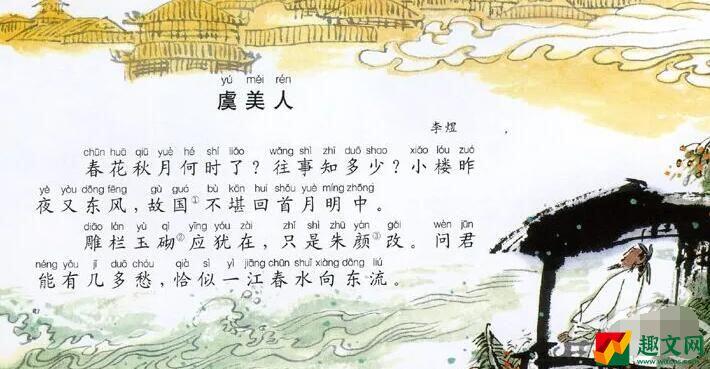 yú měi rén
虞美人
李煜
chūn huā qiū yuè hé shí liǎo wǎng shì zhī duō shao xiǎo lóu zuó
春花秋月何时了？往事知多少？小楼昨
yè yòu dōng fēng gù guó bù kān huí shǒu yuè míng zhōng
夜又东风，故国①不堪回首月明中。
diāo lán yù qì yīng yóu zài zhǐ shì zhū yán gǎi wèn jūn
雕栏玉砌②应犹在，只是朱颜③改。问君
néng yǒu jǐ duō chóu qià sì yì jiāng chūn shuǐ xiàng dōng liú
能有几多愁，恰似一江春水向东流。
趣文网